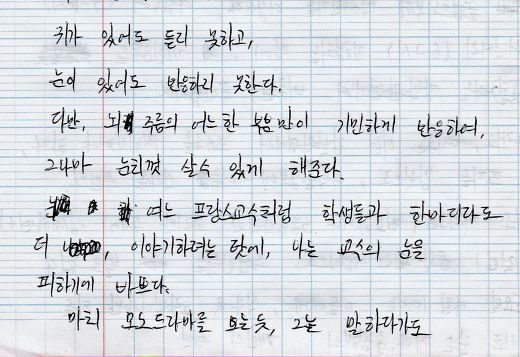 귀가 있어도 들리 못하고,
눈이 있어도 반응하리 못한다.
다만, 뇌 주름의 어느 한 부분만이 기민하게 반응하여,
그나마 눈치껏 살수 있게 해준다.
여느 프랑스교수처럼 학생들과 한마디라도
더 이야기하려는 탓에, 나는 교수의 눈을
피하기에 바쁘다.
마치 모노드라마를 보는듯, 그는 말하다가도